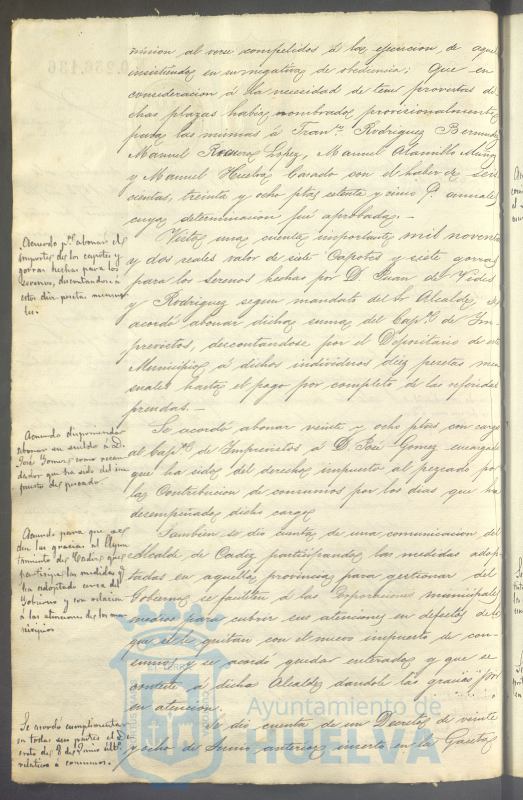 mision, al verse compelidos de la ejecucion, de aquel
insistiendo en su negativa de obediencia: Que en
consideracion á la necesidad de tener provistas di-
chas plazas habia nombrado provisionalmente
para las mismas á Franco Rodriguez Bermudez
Manuel Romero Lopez, Manuel Alamillo Muñoz
y Manuel Huelva Casado con el haber de seis
cientas, treinta y ocho ptas setenta y cinco cs anuales
cuya determinacion fué aprobada.-
Acuerdo pa abonar el
importe de los capotes y
gorras hechas para los
serenos, descontandose á
estos diez pesetas mensua-
les.
Vista una cuenta importante mil noventa
y dos reales valor de siete Capotes y siete gorras
para los serenos hechos por D. Juan de Vides
y Rodriguez segun mandato del Sr Alcalde, se
acordó abonar dicha suma del Capo de Im-
previstos, descontandose por el Depositario de este
Municipio á dichos individuos diez pesetas men-
suales hasta el pago por completo de las referidas
prendas.-
Acuerdo disponiendo
abonar su sueldo á D.
José Gomez como recau-
dador que ha sido del im-
puesto de pescado.
Se acordó abonar veinte y ocho ptas con cargo
al Capo de Imprevistos á D. José Gomez encargado
que ha sido del derecho impuesto al pescado por
la Contribucion de consumos por los dias que ha
desempeñado dicho cargo
Acuerdo para que se
den las gracias al Ayun-
tamiento de Cadiz que
participa las medidas q.
ha adoptado cerca del
Gobierno y con relacion
á las atenciones de los mu-
nicipios
Tambien se dió cuenta de una comunicacion del
Alcalde de Cadiz participando las medidas adop-
tadas en aquella provincia para gestionar del
Gobierno se faciliten á las Corporaciones municipales
medios para cubrir sus atenciones en defecto de lo
que se le quitan con el nuevo impuesto de con-
sumos, y se acordó quedar enterados y que se
conteste á dicho Alcalde dandole las gracias por
su atencion.
Se acordó cumplimentar
en todas sus partes el De-
creto de 28 de Junio ulto
relativo á consumos.
Se dió cuenta de un Decreto de veinte
y ocho de Junio anterior inserto en la Gaceta
Ayuntamiento de
HUELVA